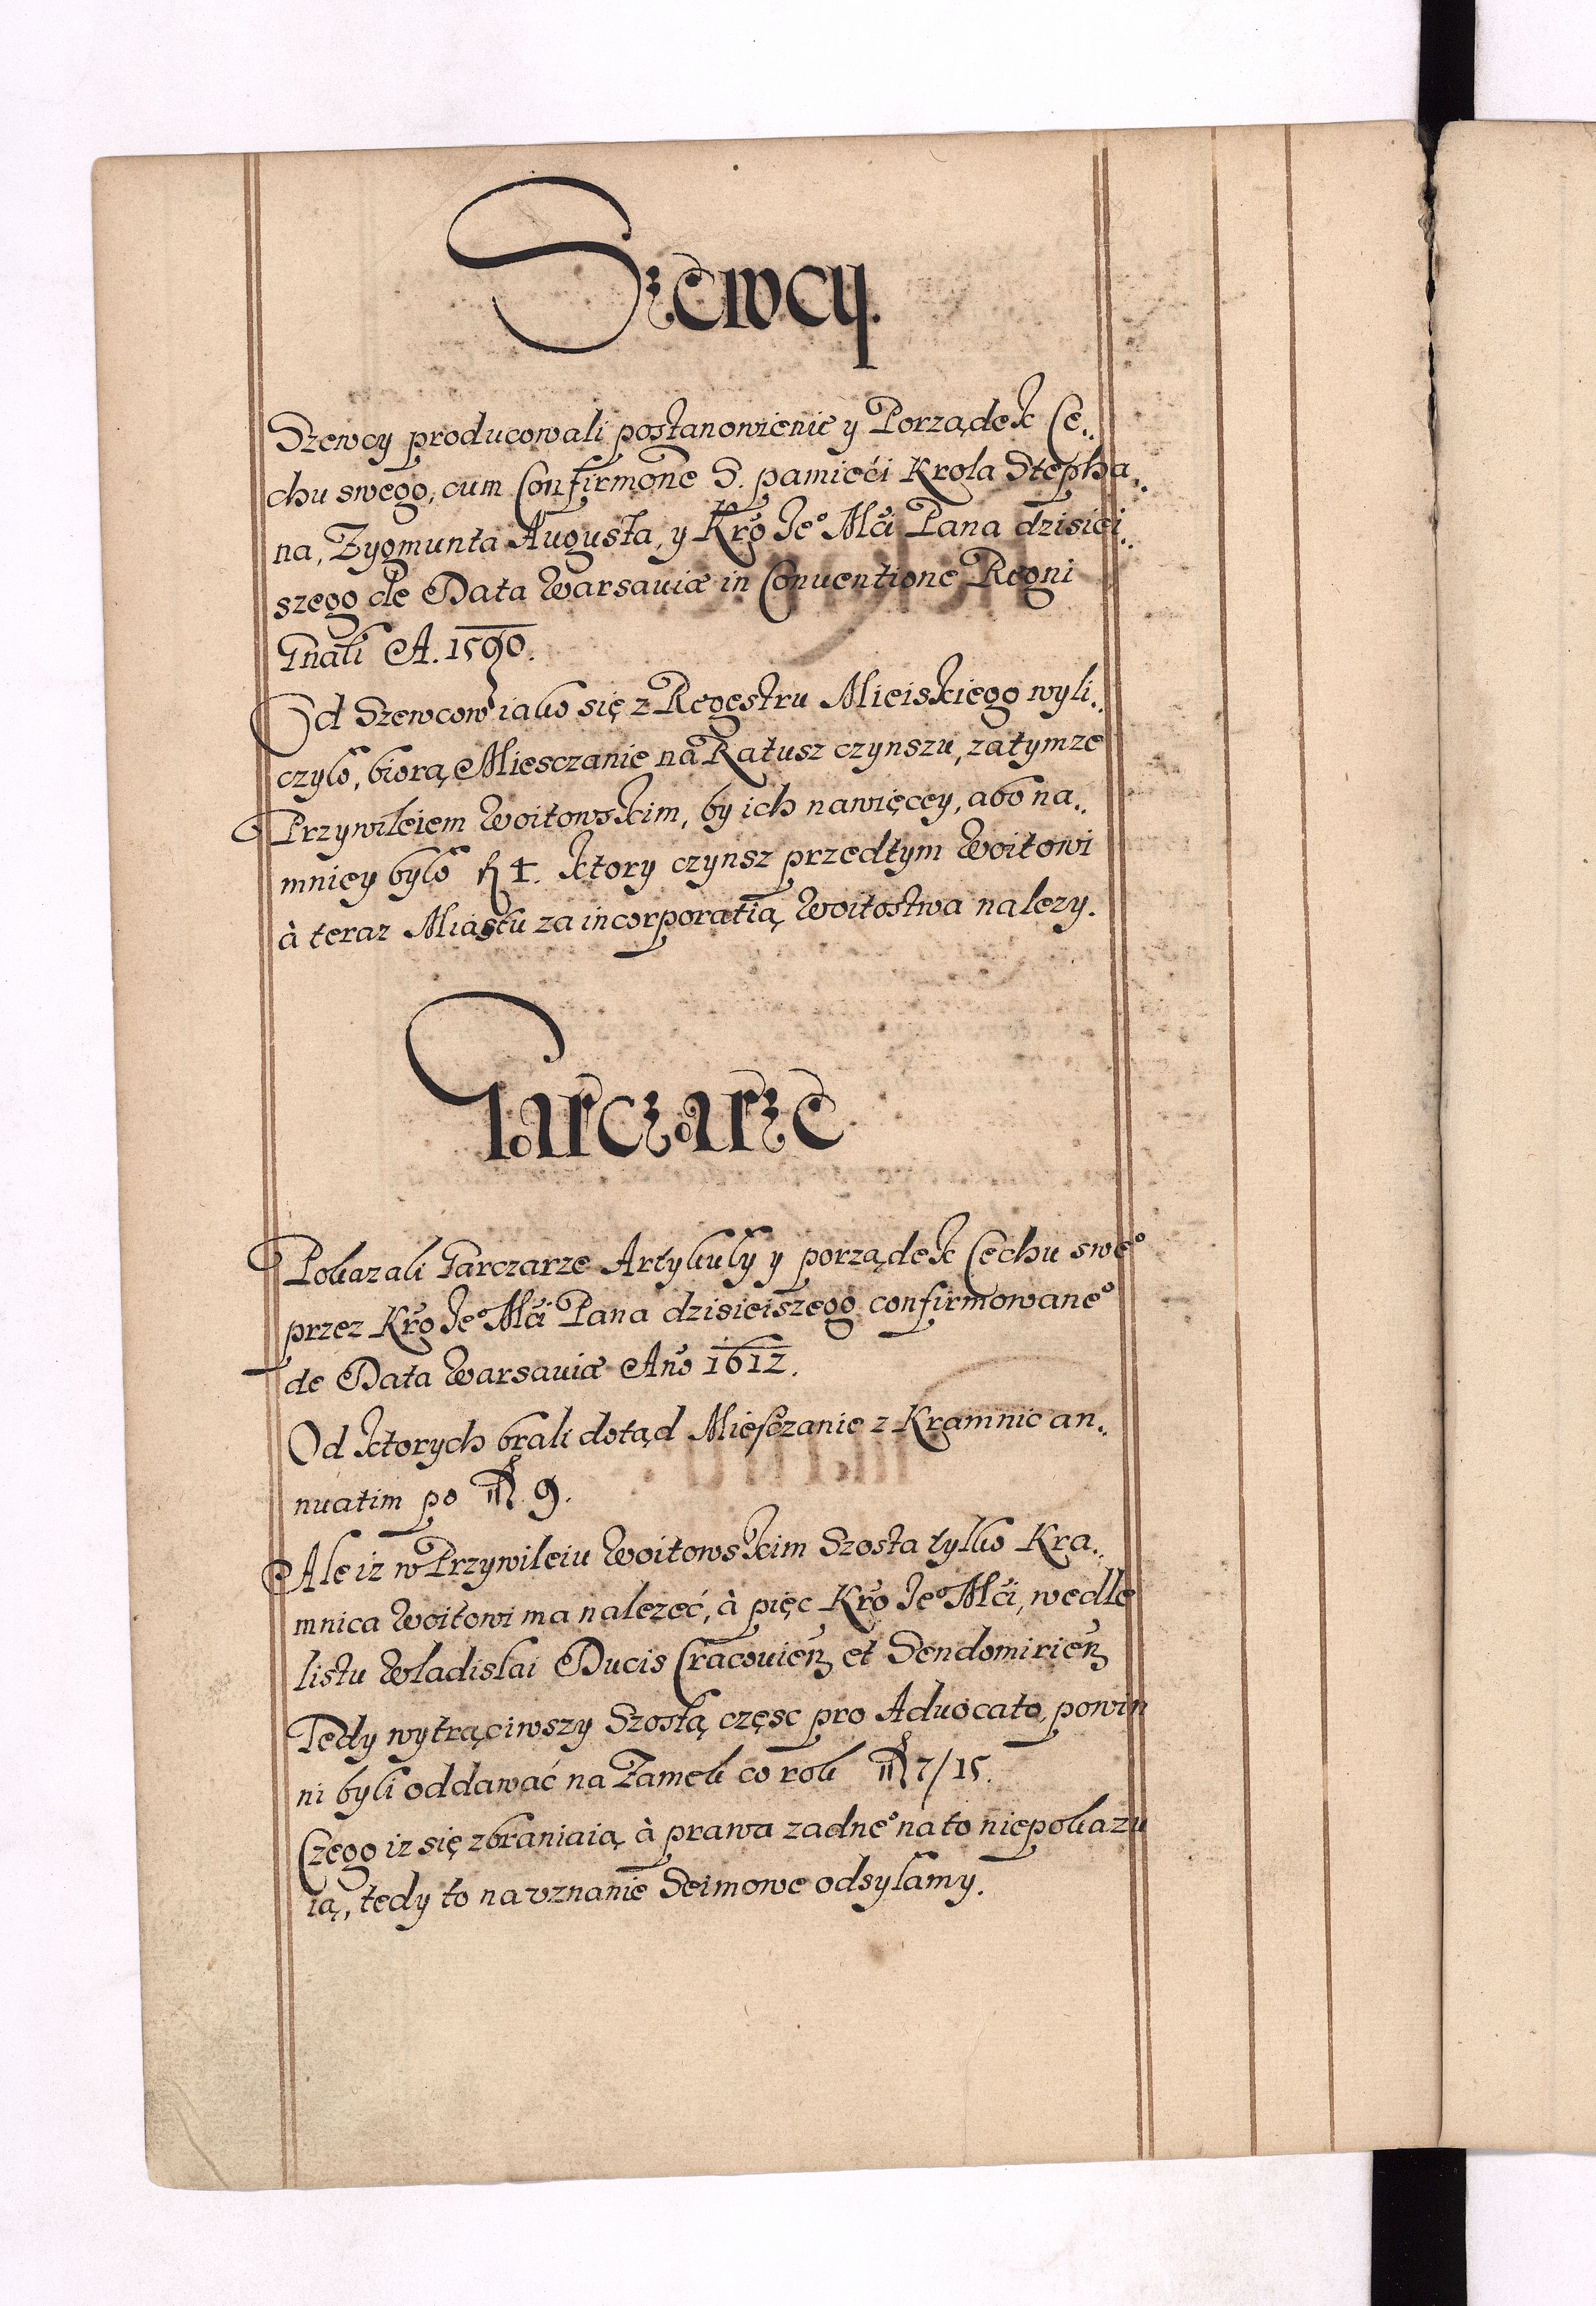 Szewcy.
Szewcy producowali postanowienie y Porządek Ce„
chu swego, cum Confirmone S. pamięći Krola Stepha„
na, Zygmunta Augusta, y Kro Jeº Mći Pana dzisiei„
szego de Data Warsauiæ in Conuentione Regni
Gnali A. 1590.
Od Szewcow iako się z Regestru Mieiskiego wyli„
czyło, biorą Miesczanie na Ratusz czynszu, zatymze
Przywileiem Woitowskim, by ich nawięcey, abo na„
mniey było fl 4. ktory czynsz przedtym Woitowi
à teraz Miastu za incorporatią Woitostwa nalezy.
Garczarze
Pokazali Garczarze Artykuły y porządek Cechu sweº
przez Kro Jeº Mći Pana dzisieiszego confirmowaneº
de Data Warsauiæ Año 1612.
Od ktorych brali dotąd Mieſczanie z Kramnic an„
nuatim po 9.
Ale iz w Przywileiu Woitowskim Szosta tylko Kra„
mnica Woitowi ma nalezeć, à pięc Kro Jeº Mći, wedle
listu Wladislai Ducis Cracouien et Sendomirien
Tedy wytrąciwszy Szostą częsc pro Aduocato, powin
ni byli oddawać na Zamek co rok 7/15.
Czego iz się zbraniaią à prawa zadneº na to niepokazu
ią, tedy to na vznanie Seimowe odsyłamy.